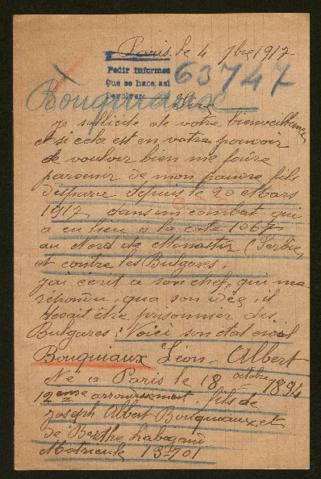 Paris, le 4 7bre 1917
Pedir informes
Que se hace así
63747
Bouquiaux
je sollicite de votre bienveillance
et si cela est en votre pouvoir
de vouloir bien me faire
parvenir de mon pauvre fils
disparu depuis le 20 Mars
1917 dans un combat qui
a eu lieu a la cote 1067
au Nord de Monastir (Serbie)
et contre les Bulgares.
j'ai écrit a son chef, qui m'a
répondu, qua son idée, il
devait être prisonnier des
Bulgares: Voici son état civil
Bouquiaux Léon - Albert
Né a Paris le 18 octobre 1894
12eme arrondissement. fils de
Joseph Albert Bouquiaux et
de Berthe
Matricule 13701